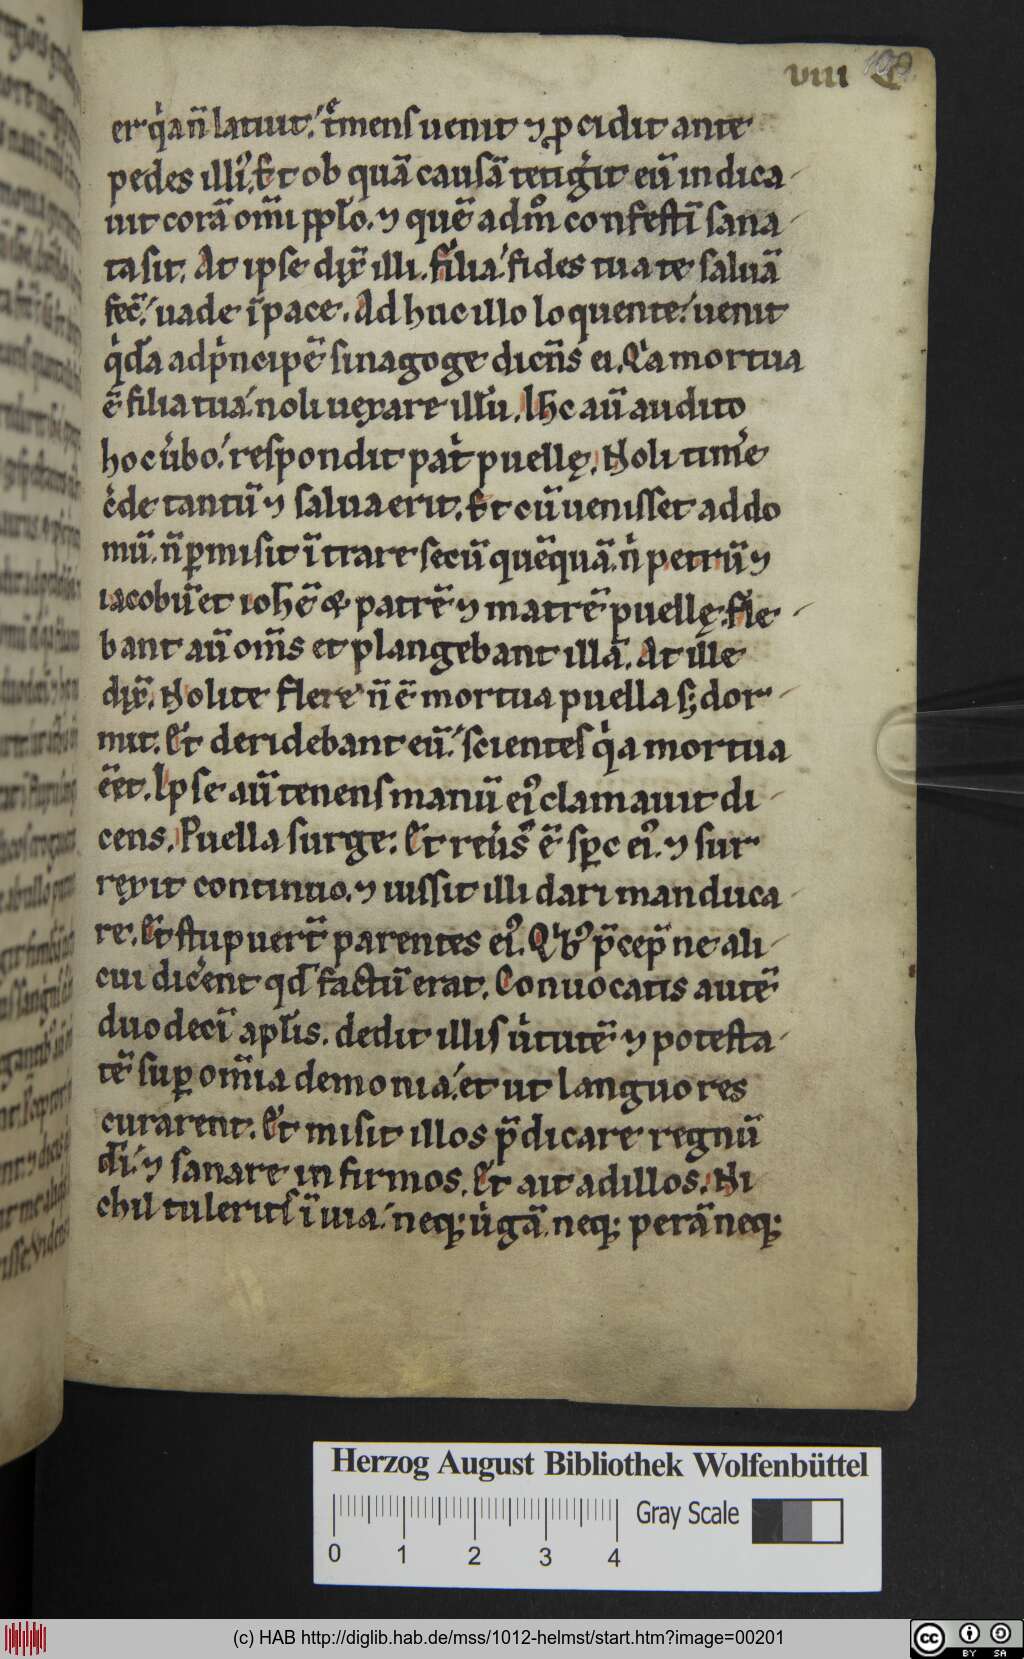 viii
er q̇ an̄ latuit. t̄mens uenit ⁊ p̱cidit ante
pedes illiꝰ. Et ob quā causā tetigit eū indica
uit corā om̄i pp̄lo. ⁊ quē adm̊ confestī sana
ta sit. At ipse dix̄ illi. filia fides tua te saluā
fec̄. uade ī pace. Adhuc illo loquente uenit
q̇da ad ṗncipē sinagoge dicn̄s ei. Q̇a mortua
ē filia tua noli uexare illū. Ihc aū audito
hoc ůbo respondit pat̓ puellę. Noli tim̓e
c̓de tantū ⁊ salua erit. Et cū uenisset ad do
mū. n̄ ꝑmisit ītrare secū quēquā. n̓ petrū ⁊
iacobū et ioh̄ē & patrē ⁊ matrē puellę. fle
bant aū om̄s et plangebant illā. At ille
dix̄. Nolite flere n̄ ē mortua puella sꝫ dor
mit. Et deridebant eū. scientes q̇a mortua
ēet. Ipse aū tenens manū eiꝰ clamauit di
cens. Puella surge. Et reu̓sꝰ ē sp̄c eiꝰ. ⁊ sur
rexit continuo. ⁊ iussit illi dari manduca
re. Et stupuer̄t parentes eiꝰ. Q̇bꝰ p̄cep̄ ne ali
cui dic̓ent qd̄ factū erat. Conuocatis autē
duodecī apl̄is. dedit illis u̓tutē ⁊ potesta
tē suꝑ om̄ia demonia et ut languores
curarent. Et misit illos p̄dicare regnū
dī. ⁊ sanare infirmos. Et ait ad illos. Ni
chil tulerits̄ ī uia neqꝫ u̓gā neqꝫ perā neqꝫ
Herzog August Bibliothek Wolfenbüttel
Gray Scale
0 1 2 3 4
(c) HAB http://diglib.hab.de/mss/1012-helmst/start.htm?image=00201
cc BY SA